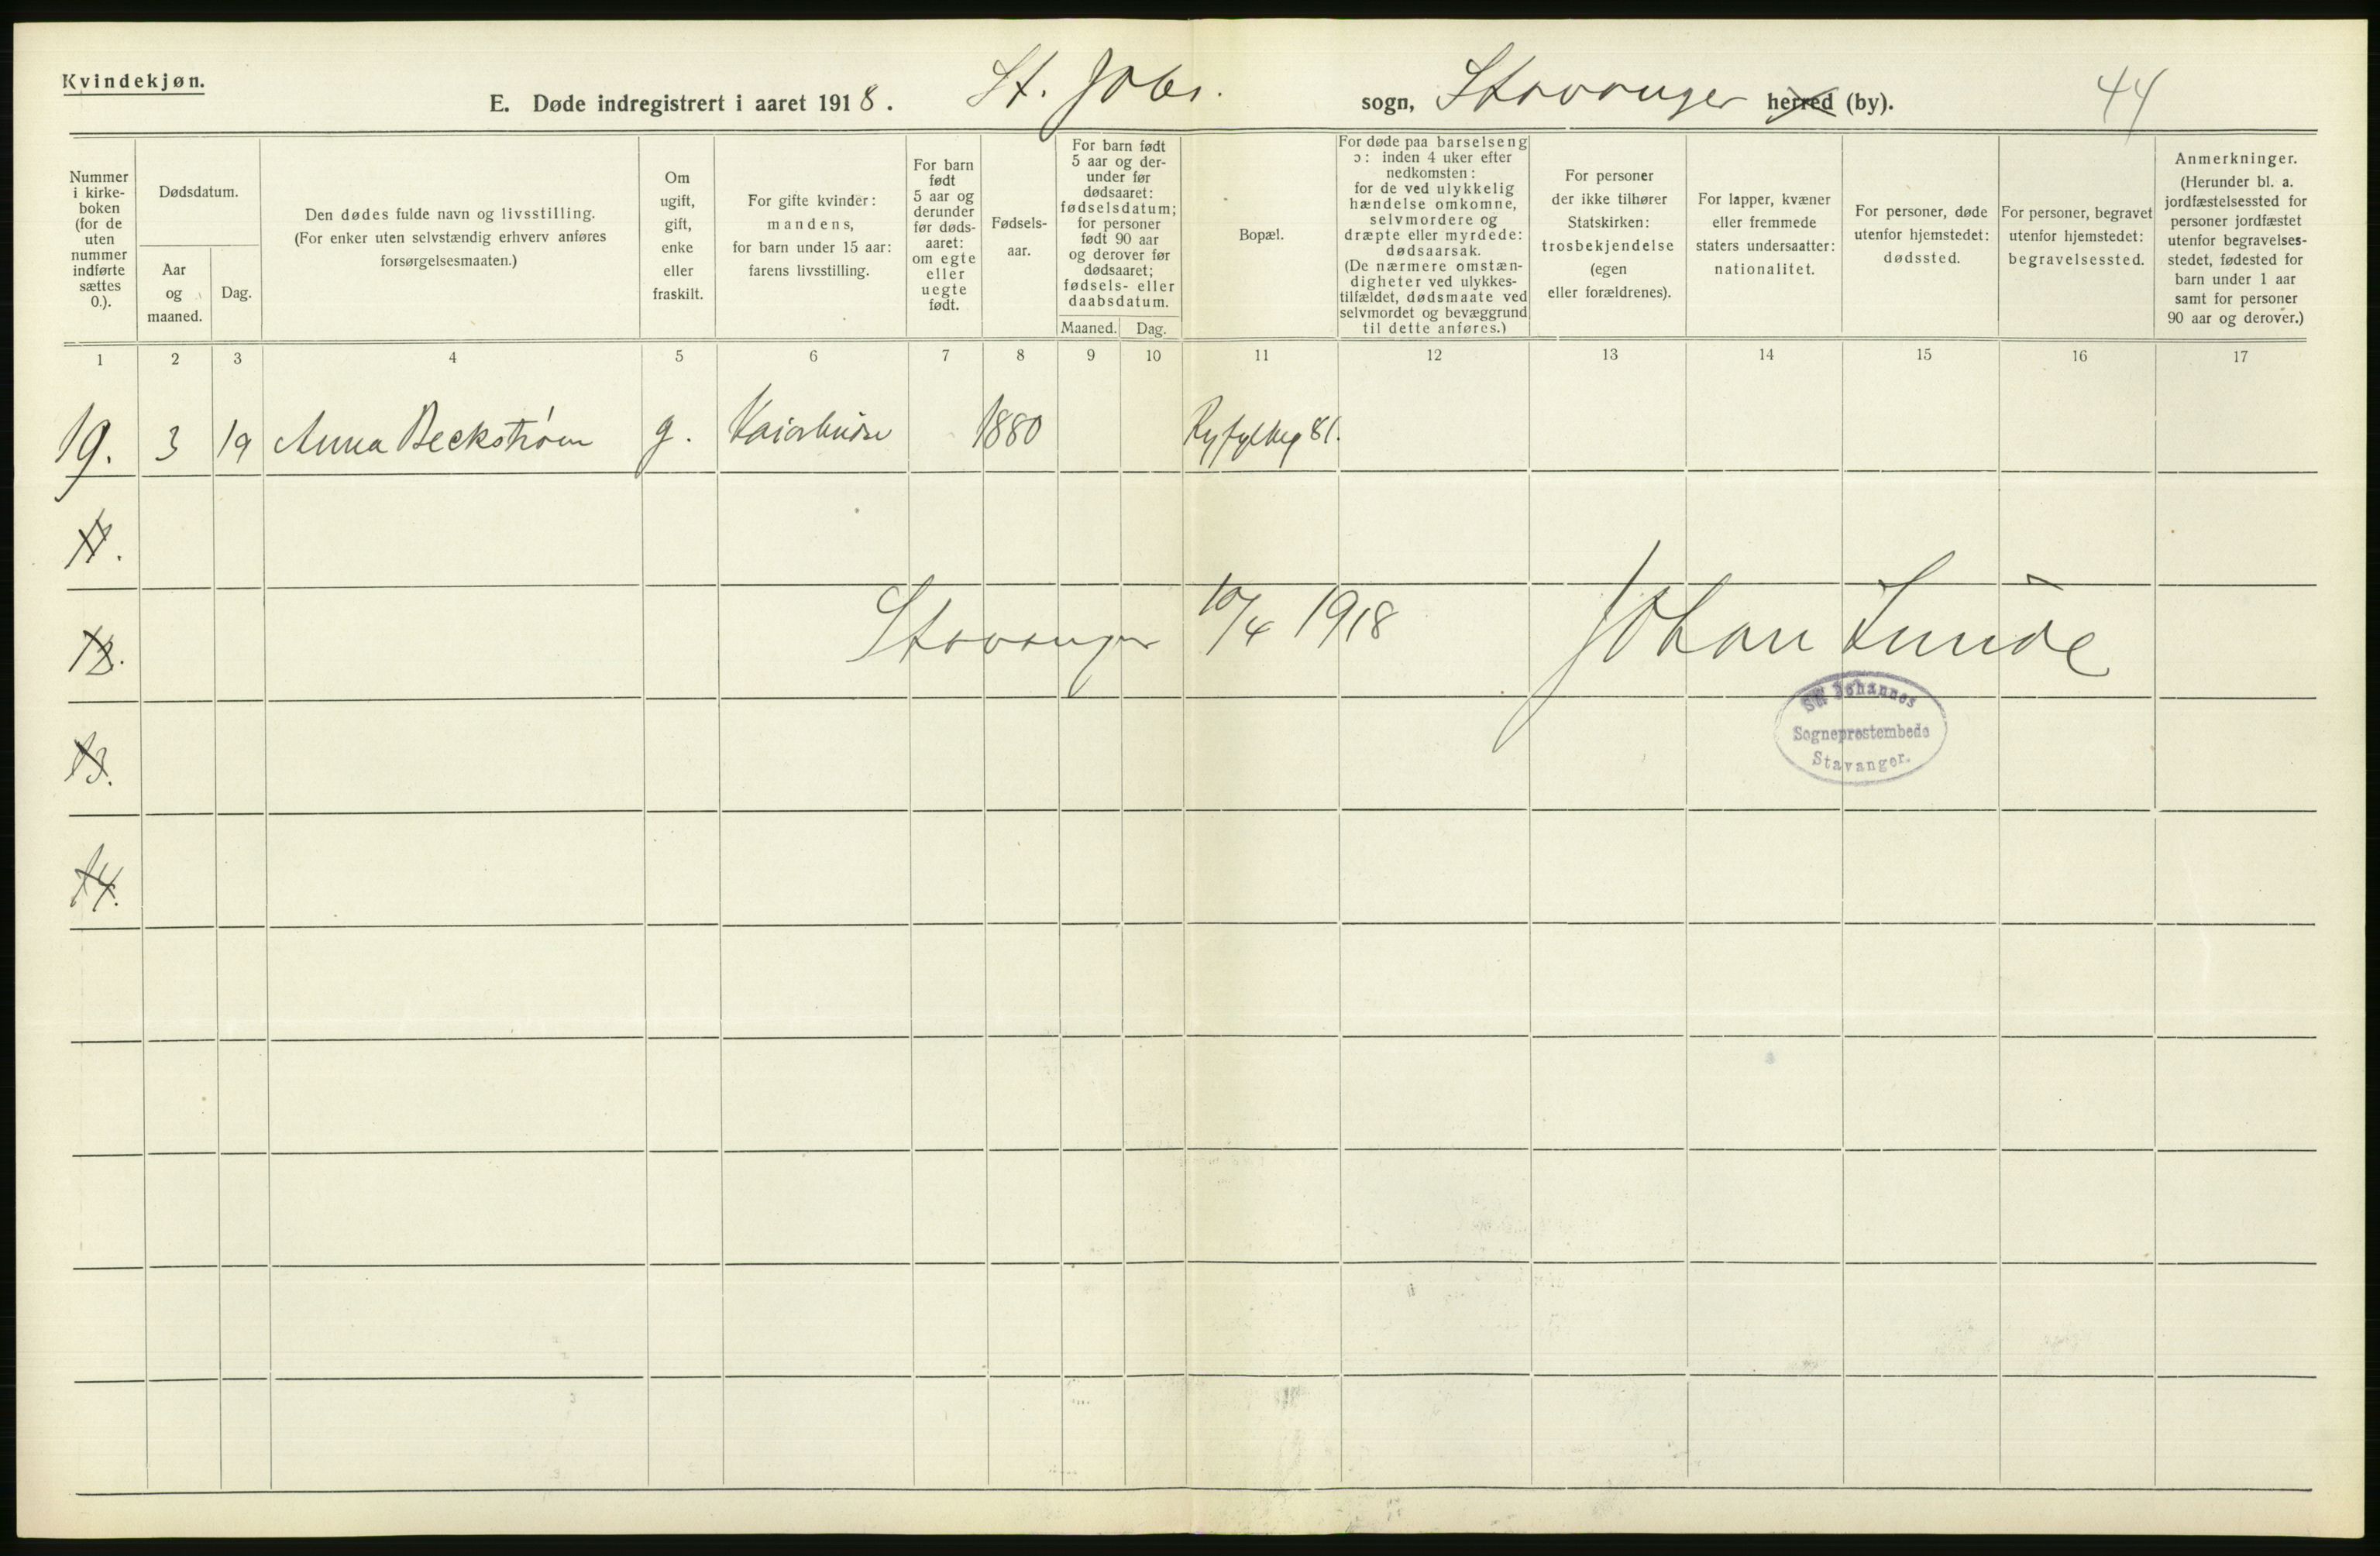 Kvindekjøn.
E. Døde indregistrert i aaret 1918. St. Johs. sogn, Stavanger herred (by). 44
Nummer
i kirke-
boken
(for de
uten
nummer
indførte
sættes
0.).
Dødsdatum.
Aar
og
maaned.
Dag.
Den dødes fulde navn og livsstilling.
(For enker uten selvstændig erhverv anføres
forsørgelsesmaaten.)
Om
ugift,
gift,
enke
eller
fraskilt.
For gifte kvinder:
mandens,
for barn under 15 aar:
farens livsstilling.
For barn
født
5 aar og
derunder
før døds-
aaret:
om egte
eller
uegte
født.
Fødsels-
aar.
For barn født
5 aar og der-
under før
dødsaaret:
fødselsdatum;
for personer
født 90 aar
og derover før
dødsaaret;
fødsels- eller
daabsdatum.
Maaned. Dag.
Bopæl.
For døde paa barselseng
ɔ: inden 4 uker efter
nedkomsten:
for de ved ulykkelig
hændelse omkomne,
selvmordere og
dræpte eller myrdede:
dødsaarsak.
(De nærmere omstæn-
digheter ved ulykkes-
tilfældet, dødsmaate ved
selvmordet og bevæggrund
til dette anføres.)
For personer
der ikke tilhører
Statskirken:
trosbekjendelse
(egen
eller forældrenes).
For lapper, kvæner
eller fremmede
staters undersaatter:
nationalitet.
For personer, døde
utenfor hjemstedet:
dødssted.
For personer, begravet
utenfor hjemstedet:
begravelsessted.
Anmerkninger.
(Herunder bl. a.
jordfæstelsessted for
personer jordfæstet
utenfor begravelses-
stedet, fødested for
barn under 1 aar
samt for personer
90 aar og derover.)
1 2 3 4 5 6 7 8 9 10 11 12 13 14 15 16 17
19. 3 19 Anna Beckstrøm g. 1880 Ryfylkeg 81.
11.
12.
Stavanger 10/4 1918 Johan Lunde
St. Johannes
Sogneprestembede
Stavanger.
13.
14.